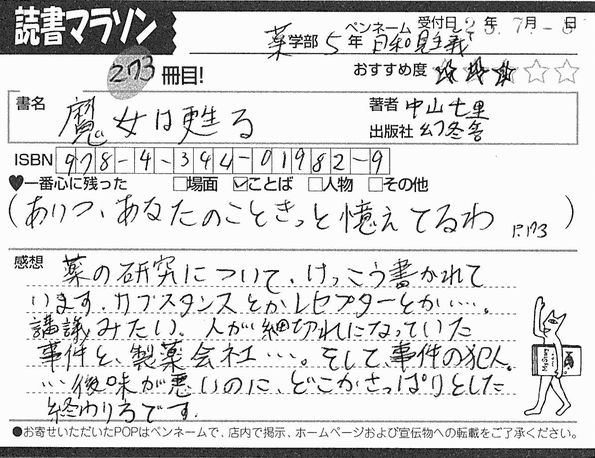 読書マラソン
ペンネーム 受付日 2年7月-3日
薬学部5年 日和見主義
273冊目!
おすすめ度 ★★★☆☆
書名 魔女は甦る
著者 中山七里
出版社 幻冬舎
ISBN 978-4-344-01982-9
♥一番心に残った □場面 ☑ことば □人物 □その他
(ありつ、あなたのこときっと憶えてるわ P.173)
感想 薬の研究について、けっこう書かれて
います。カブスタンスとかレセプターとか….
講議みたい。人が細切れになっていた
事件と、製薬会社…。そして、事件の犯人。
…後味が悪いのに、どこかさっぱりとした
終わりろです。
●お寄せいただいたPOPはペンネームで、店内で掲示、ホームページおよび宣伝物への転載をご了承ください。